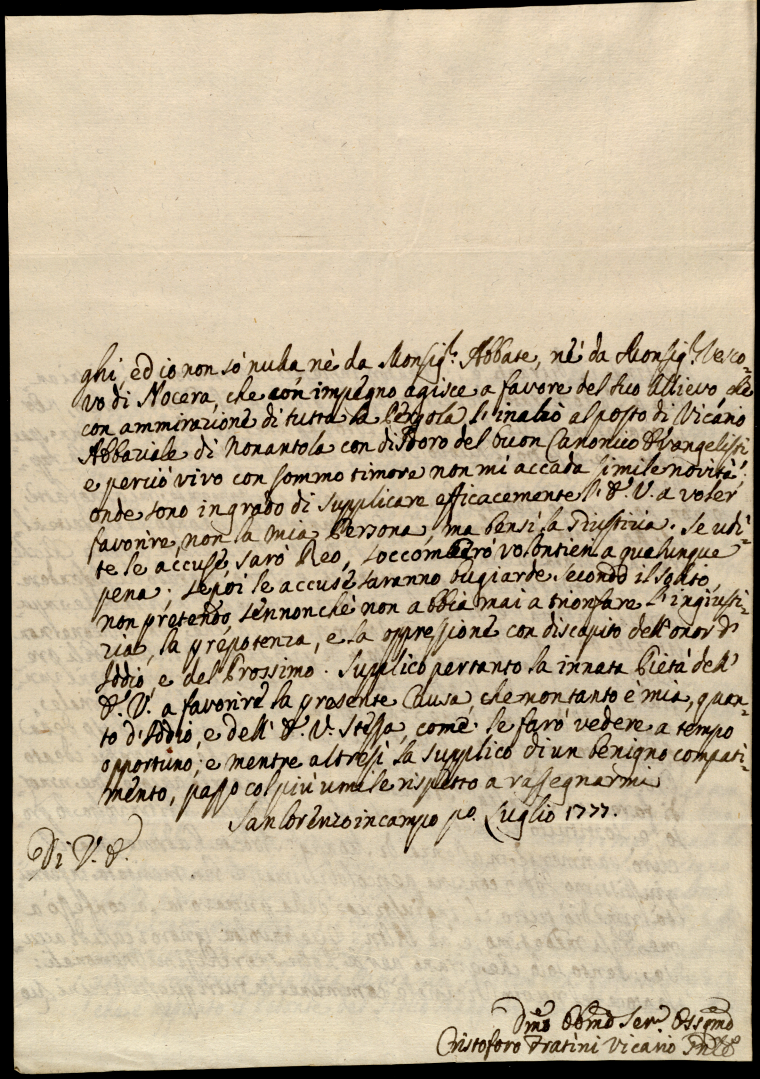 ghi, ed io non sò nulla nè da Monsig.r Abbate, nè da Monsig.r Vesco-
vo di Nocera, che con impegno agisce a favore del suo Allievo, che
con ammirazione di tutta la Pergola l'inalzò al posto di Vicario
Abbaziale di Nonantola con disdoro del buon Canonico Evangelisti
e perciò vivo con sommo timore non mi accada simile novità;
onde sono in grado di supplicare efficacemente l'E. V. a voler
favorire, non la mia Persona, ma bensì la Giustizia. Se udi-
te le accuse, sarò Reo, soccomberò volontieri a qualunque
pena; se poi le accuse saranno bugiarde secondo il solito,
non pretendo, sennonchè non abbia mai a trionfare l'ingiusti-
zia, la prepotenza, e la oppressione con discapito dell'onor d'
Iddio, e del Prossimo. Supplico pertanto la innata Pietà dell'
E. V. a favorire la presente Causa, che non tanto è mia, quan-
to d'Iddio, e dell'E. V. Stessa, come le farò vedere a tempo
opportuno; e mentre altresì la supplico di un benigno compati-
mento, passo col più umile rispetto a rassegnarmi
San Lorenzo in campo p.o Luglio 1777.
Di V. E.
Dmo Obmo Ser.e Ossqmo
Cristoforo Fratini Vicario